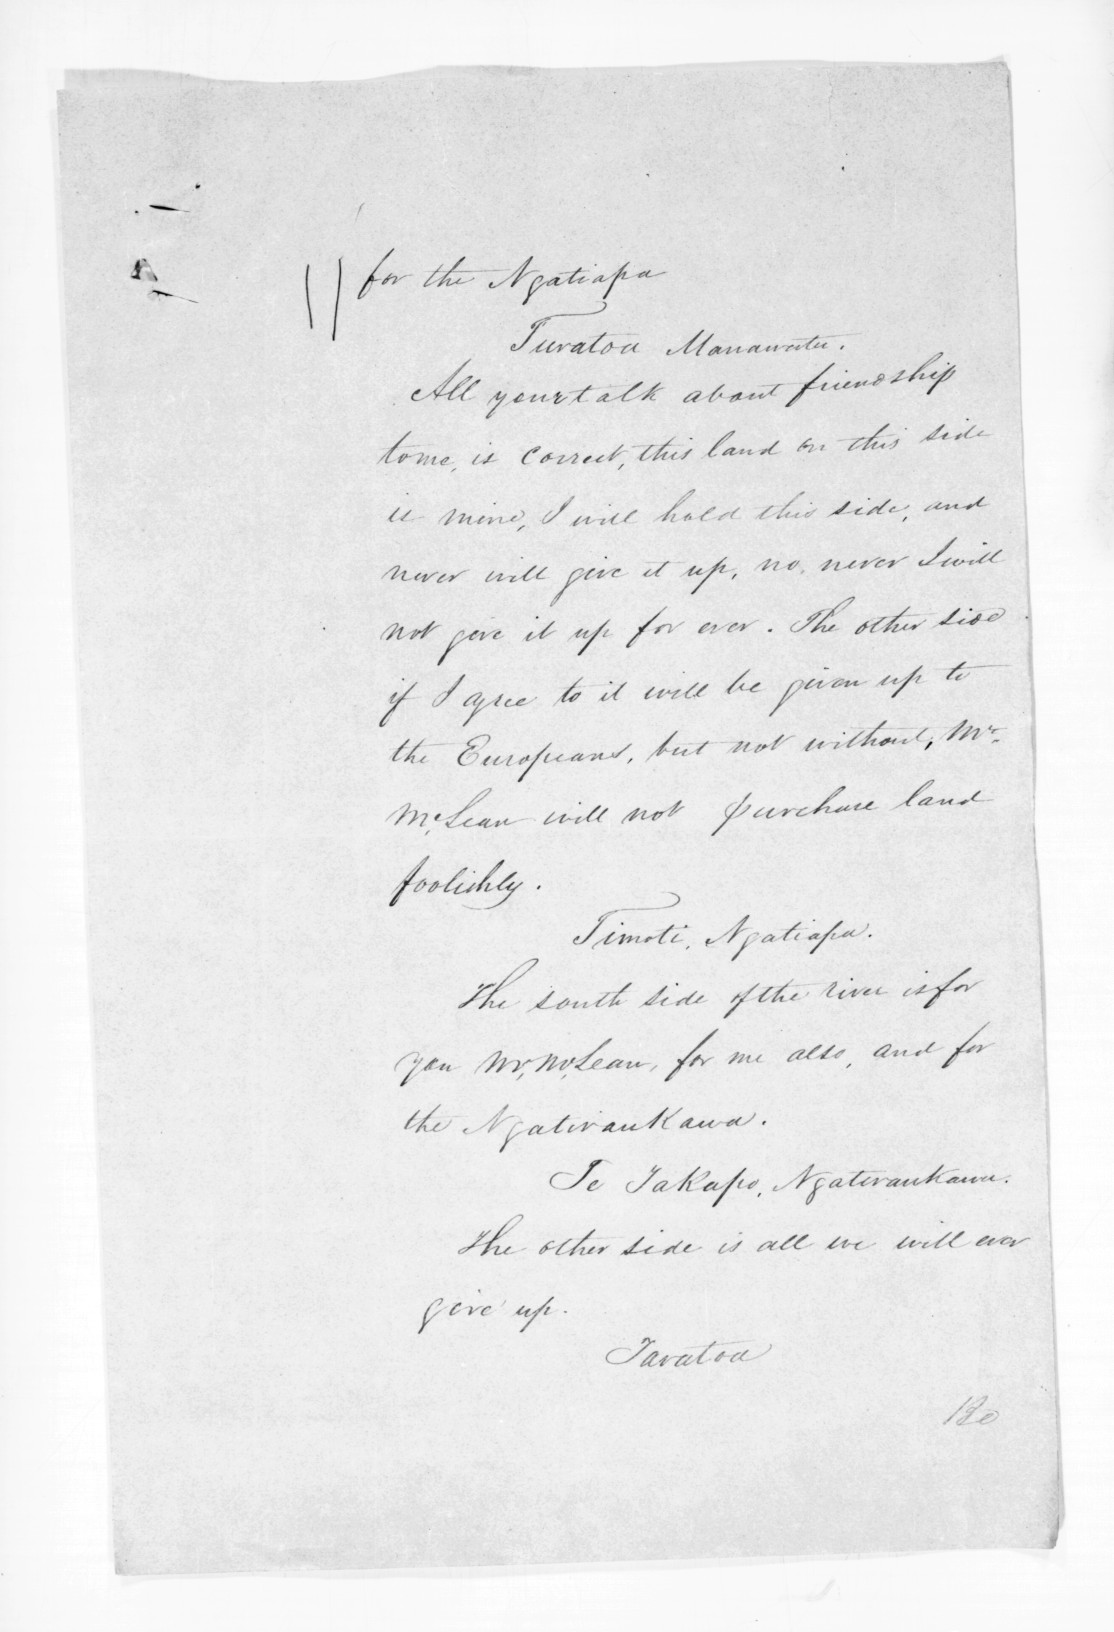 for the Ngatiapa
Turatoa Manawatu.
All your talk about friendship
to me, is correct, this land on this side
is mine, I will hold this side, and
never will give it up, no, never I will
not give it up for ever. The other side
if I agree to it will be given up to
the Europeans, but not without, Mr.
McLean will not purchase land
foolishly.
Timoti, Ngatiapa.
The south side of the river is for
you Mr. McLean, for me also, and for
the Ngatiraukawa.
Te Takapo, Ngatiraukawa.
The other side is all we will ever
give up.
Taratoa